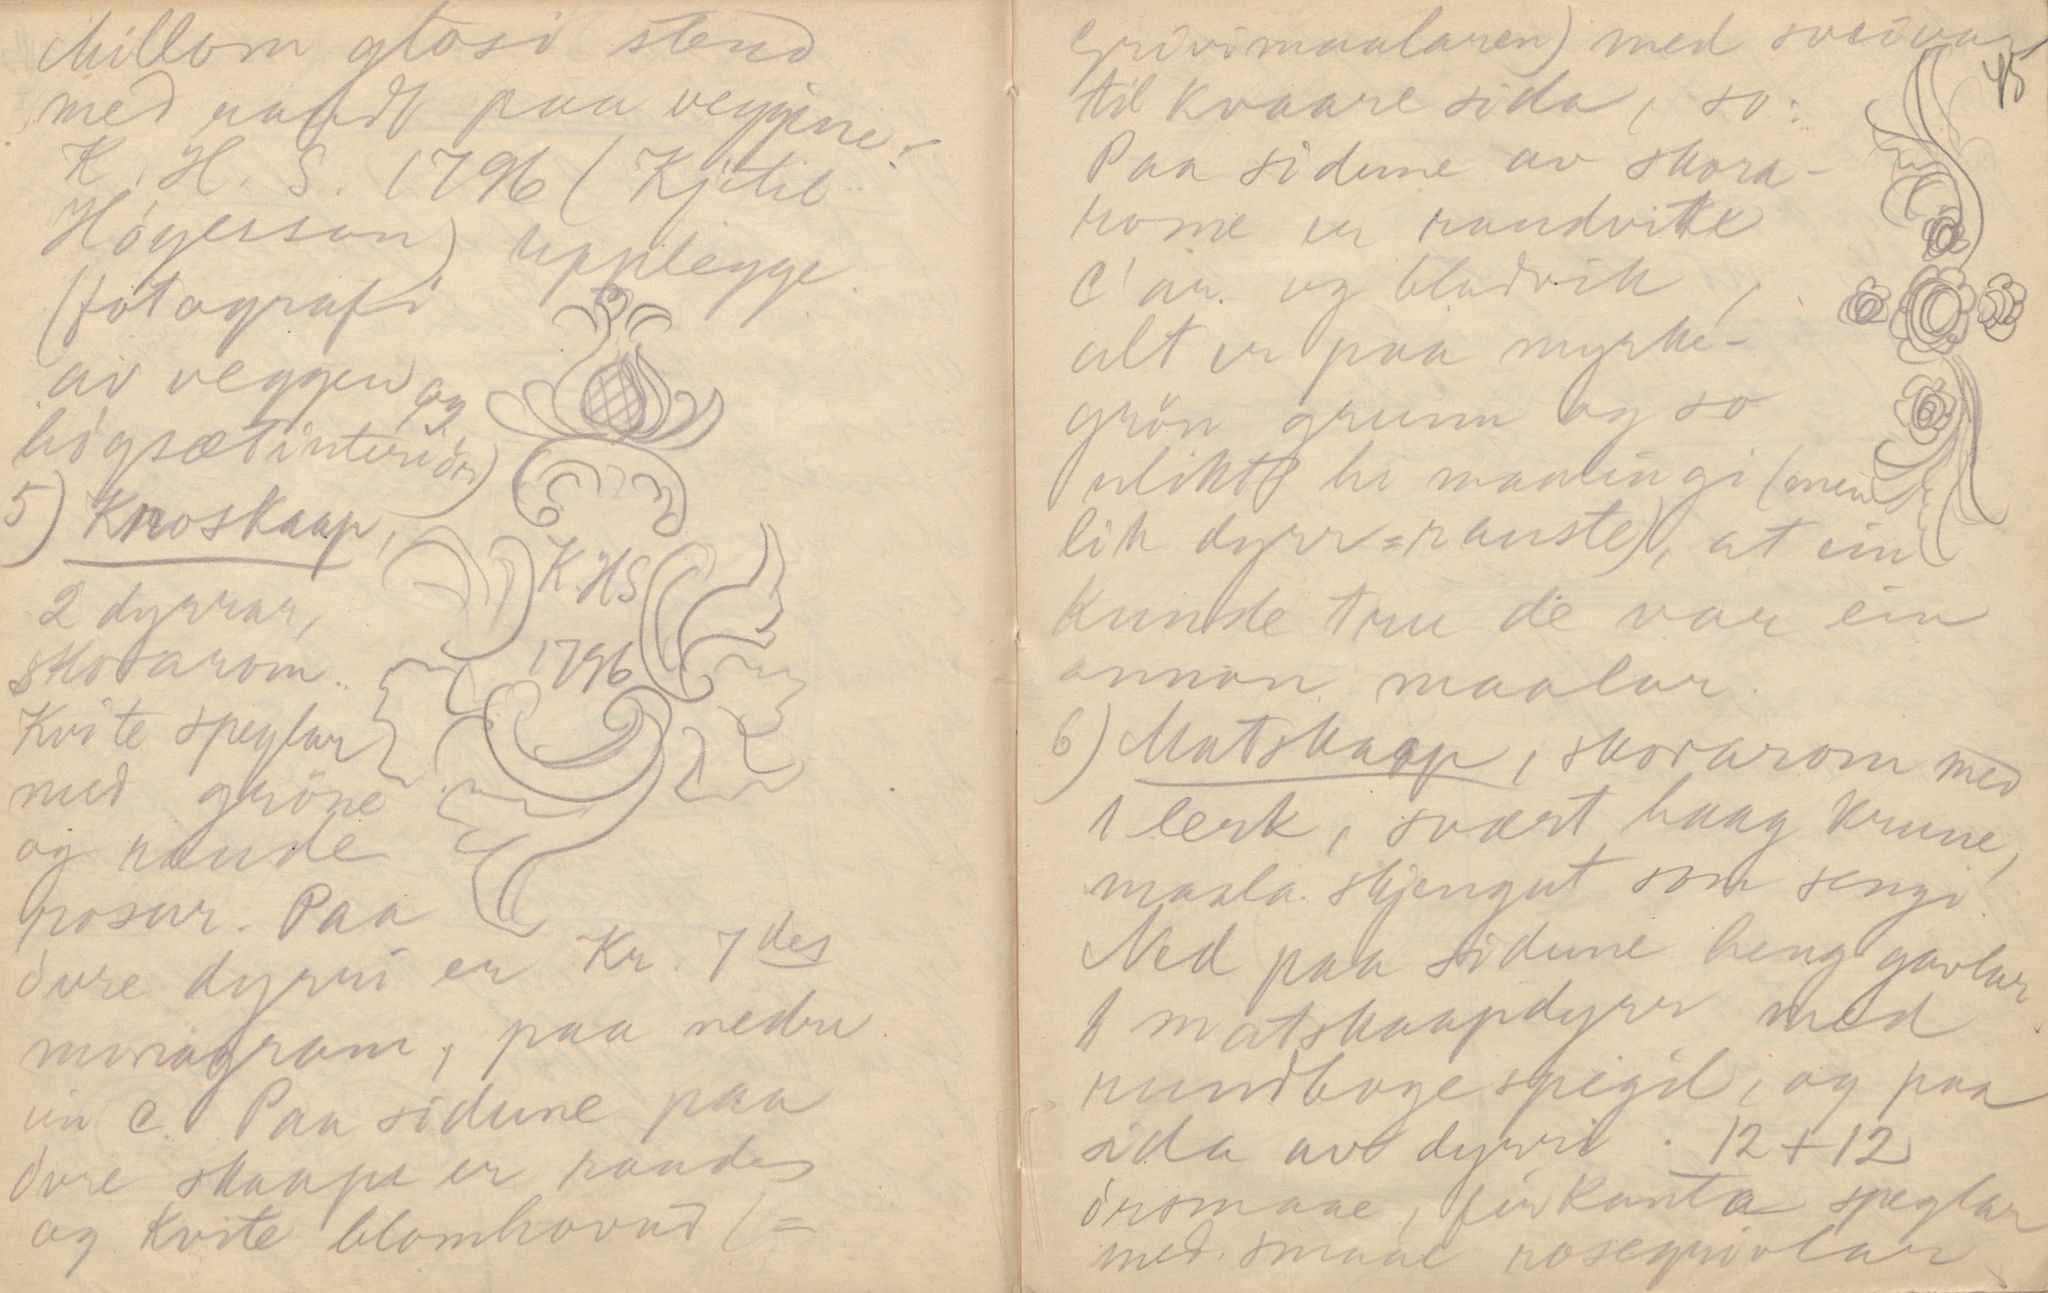 Millom glosi stend
med raudt paa veggine:
K. H. S. 1796 (Kjitil
Høgesson) upplegge.
(fotografi
av veggen og
högsætinteriör)
5) Kroskaap,
2 dyrrar,
skorarom.
Kvite speglar
med gröne
og raude
rosur. Paa
övre dyrri er Kr. 7des
monogram, paa nedre
ein C. Paa sidune paa
övre skaape er raudes
og kvite blomhovud (=
K HS
1796
45
Grivimaalaren) med sveivar
til kvaare sida, so:
Paa sidune av skora-
rome er raudvite
C'ar og bladvik,
alt er paa myrke-
grön grunn og so
ulikt hi maalingi (men
lik dyrr=rauste), at ein
kunde tru de var ein
annan maalar.
6) Matskaap, skorarom med
1 lerk, svært haag krune,
maala. skjengut som sengi.
Ned paa sidune heng gavlar
1 matskaapdyrr med
rundboge spegil, og paa
sida av dyrri 12 + 12
örsmaae, firkanta speglar
med smaae rosequivlar